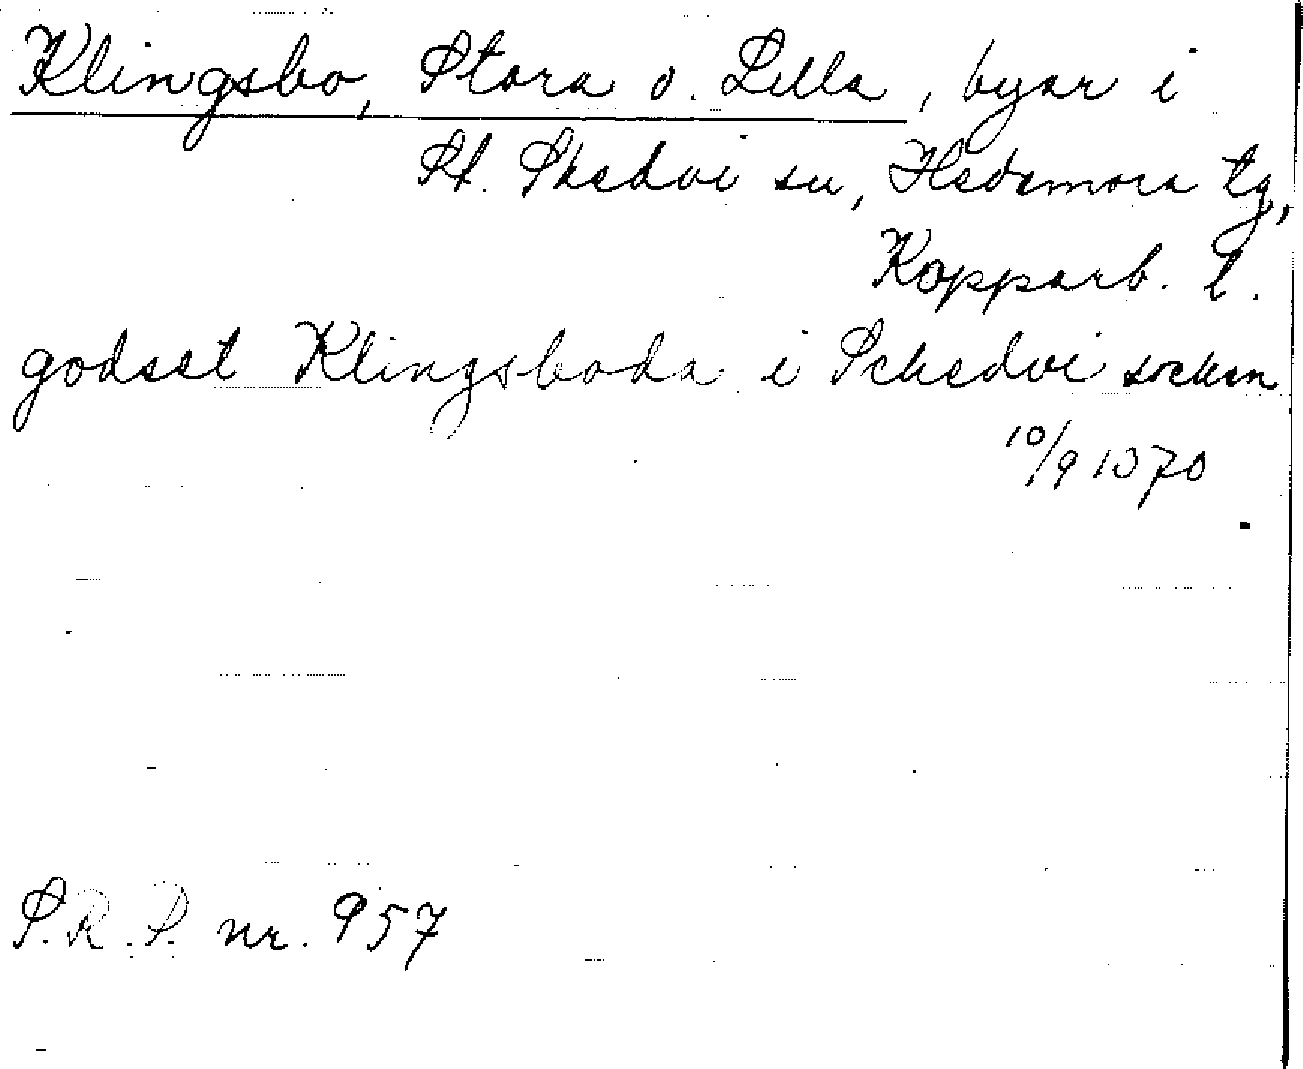 Klingsbo, Stora o. Lilla, byar i
St. Skedvi sn, Hedemora tg,
Kopparb. l.
godset Klingsboda i Schedvi socken
10/9 1370
S.R.P. nr. 957